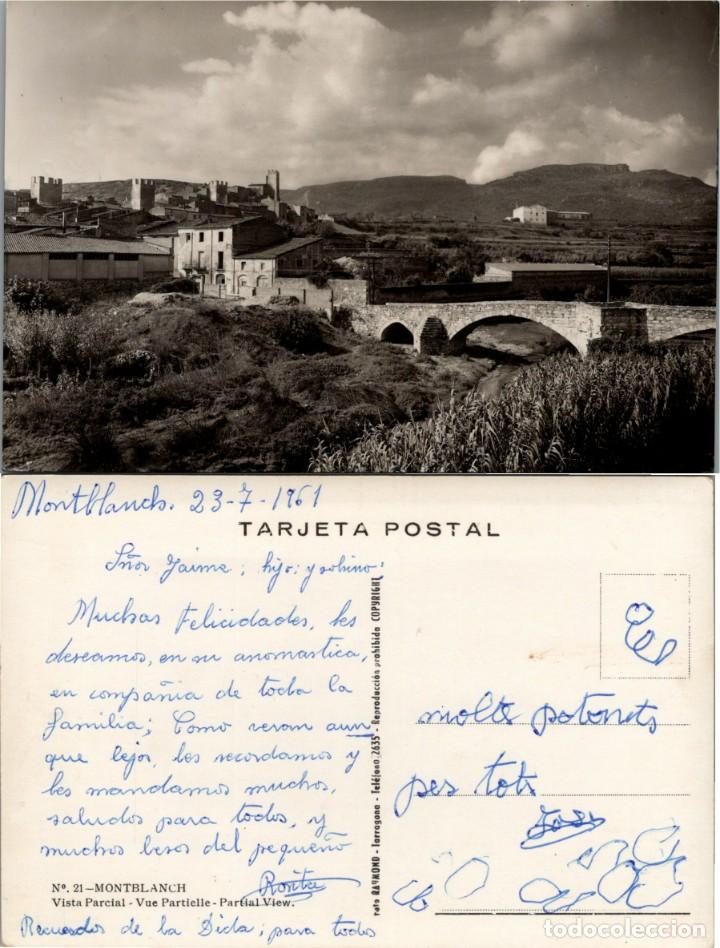 Montblanch. 23-7-1961
TARJETA POSTAL
Sñor Jaime; hijo: y sobino:
Muchas Felicidades, les
deseamos, en su anomastica,
en compañia de toda la
familia; Como veran aun
que lejos, les recordamos y
les mandamos muchos,
saludos para todos, y
muchos besos del pequeño
Nº. 21-MONTBLANCH
Vista Parcial - Vue Partielle - Partial View.
Recuerdos de la Dida; para todos
Foto RAYMOND - Tarragona - Teléfono, 2635 - Reproducción prohibida COPYRIGHT
molts potonets
pes tots
todocoleccion